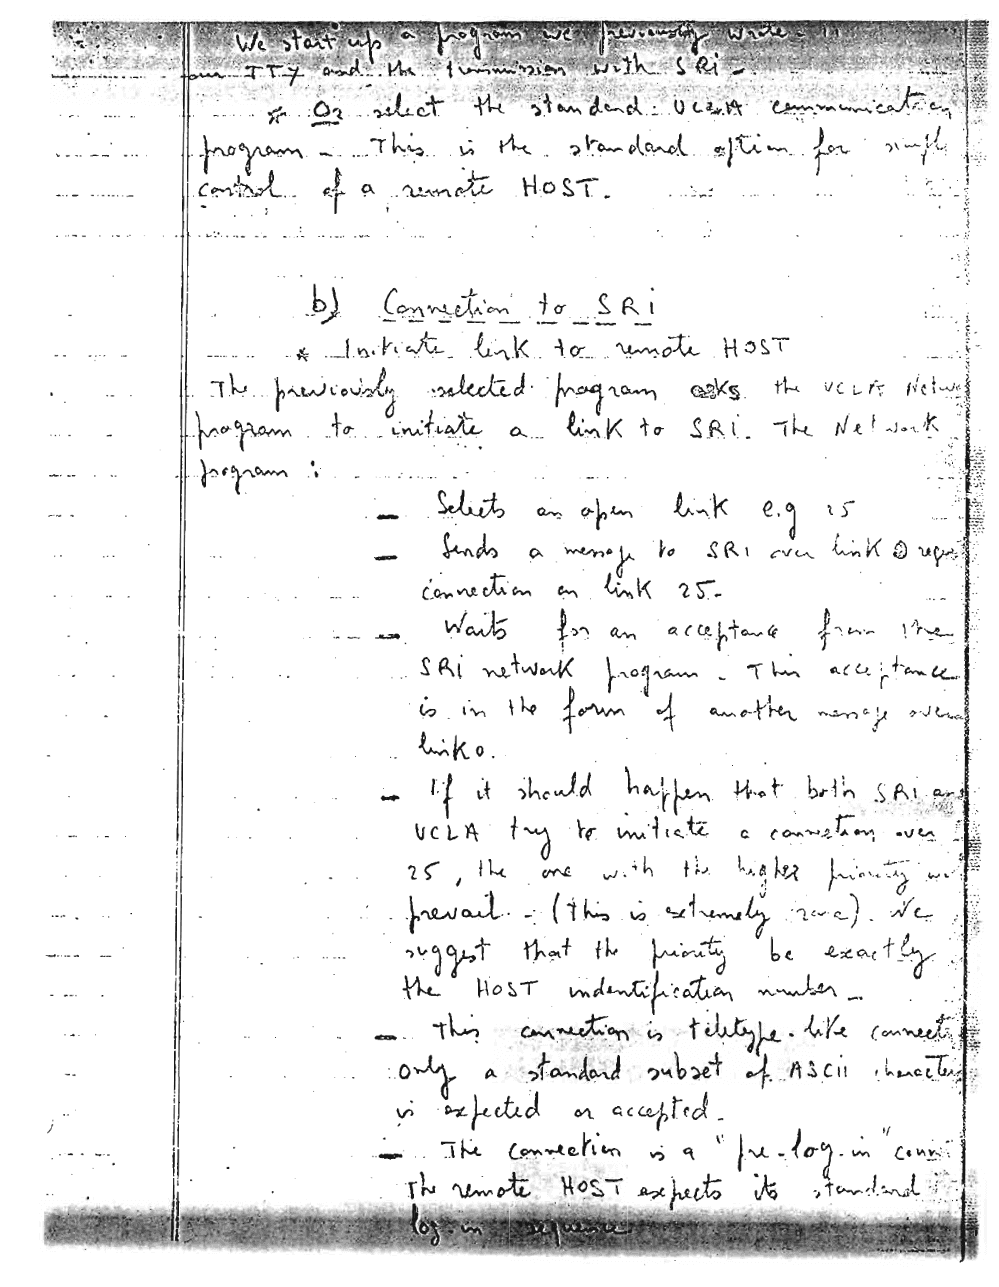 We start up a program we previously wrote.
our TTY and the transmission with SRi -
* Or select the standard UCLA communication
program - This is the standard option for simple
control of a remote HOST.
b) Connection to SRi
* Initiate link to remote HOST
The previously selected program asks the UCLA Netw
program to initiate a link to SRi. The Network
program :
- Selects an open link e.g 25
- Sends a message to SRI over link 0 reque
connection on link 25-
- Waits for an acceptance from the
SRi network program - This acceptance
is in the form of another message over
link 0.
- If it should happen that both SRI and
UCLA try to initiate a connection over
25, the one with the higher priority
prevail - (this is extremely rare). We
suggest that the priority be exactly
the HOST indentification number -
- This connection is teletype-like connect
only a standard subset of ASCii characters
is expected or accepted -
- The connection is a "pre-log-in" conn
The remote HOST expects its standard
log-in sequence